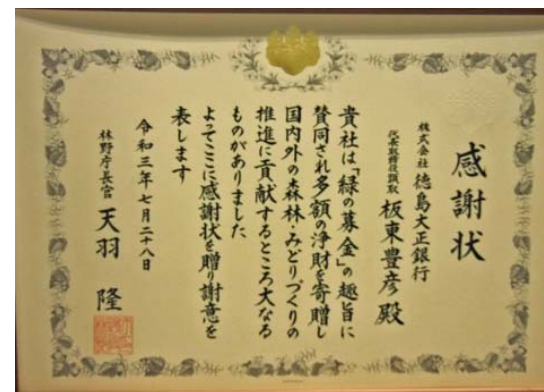 感謝状
株式会社 徳島大正銀行
代表取締役頭取 板東豊彦 殿
貴社は「緑の募金」の趣旨に
賛同され多額の浄財を寄贈し
国内外の森林・みどりづくりの
推進に貢献するところ大なる
ものがありました
よってここに感謝状を贈り謝意を
表します
令和三年七月二十八日
林野庁長官 天羽 隆